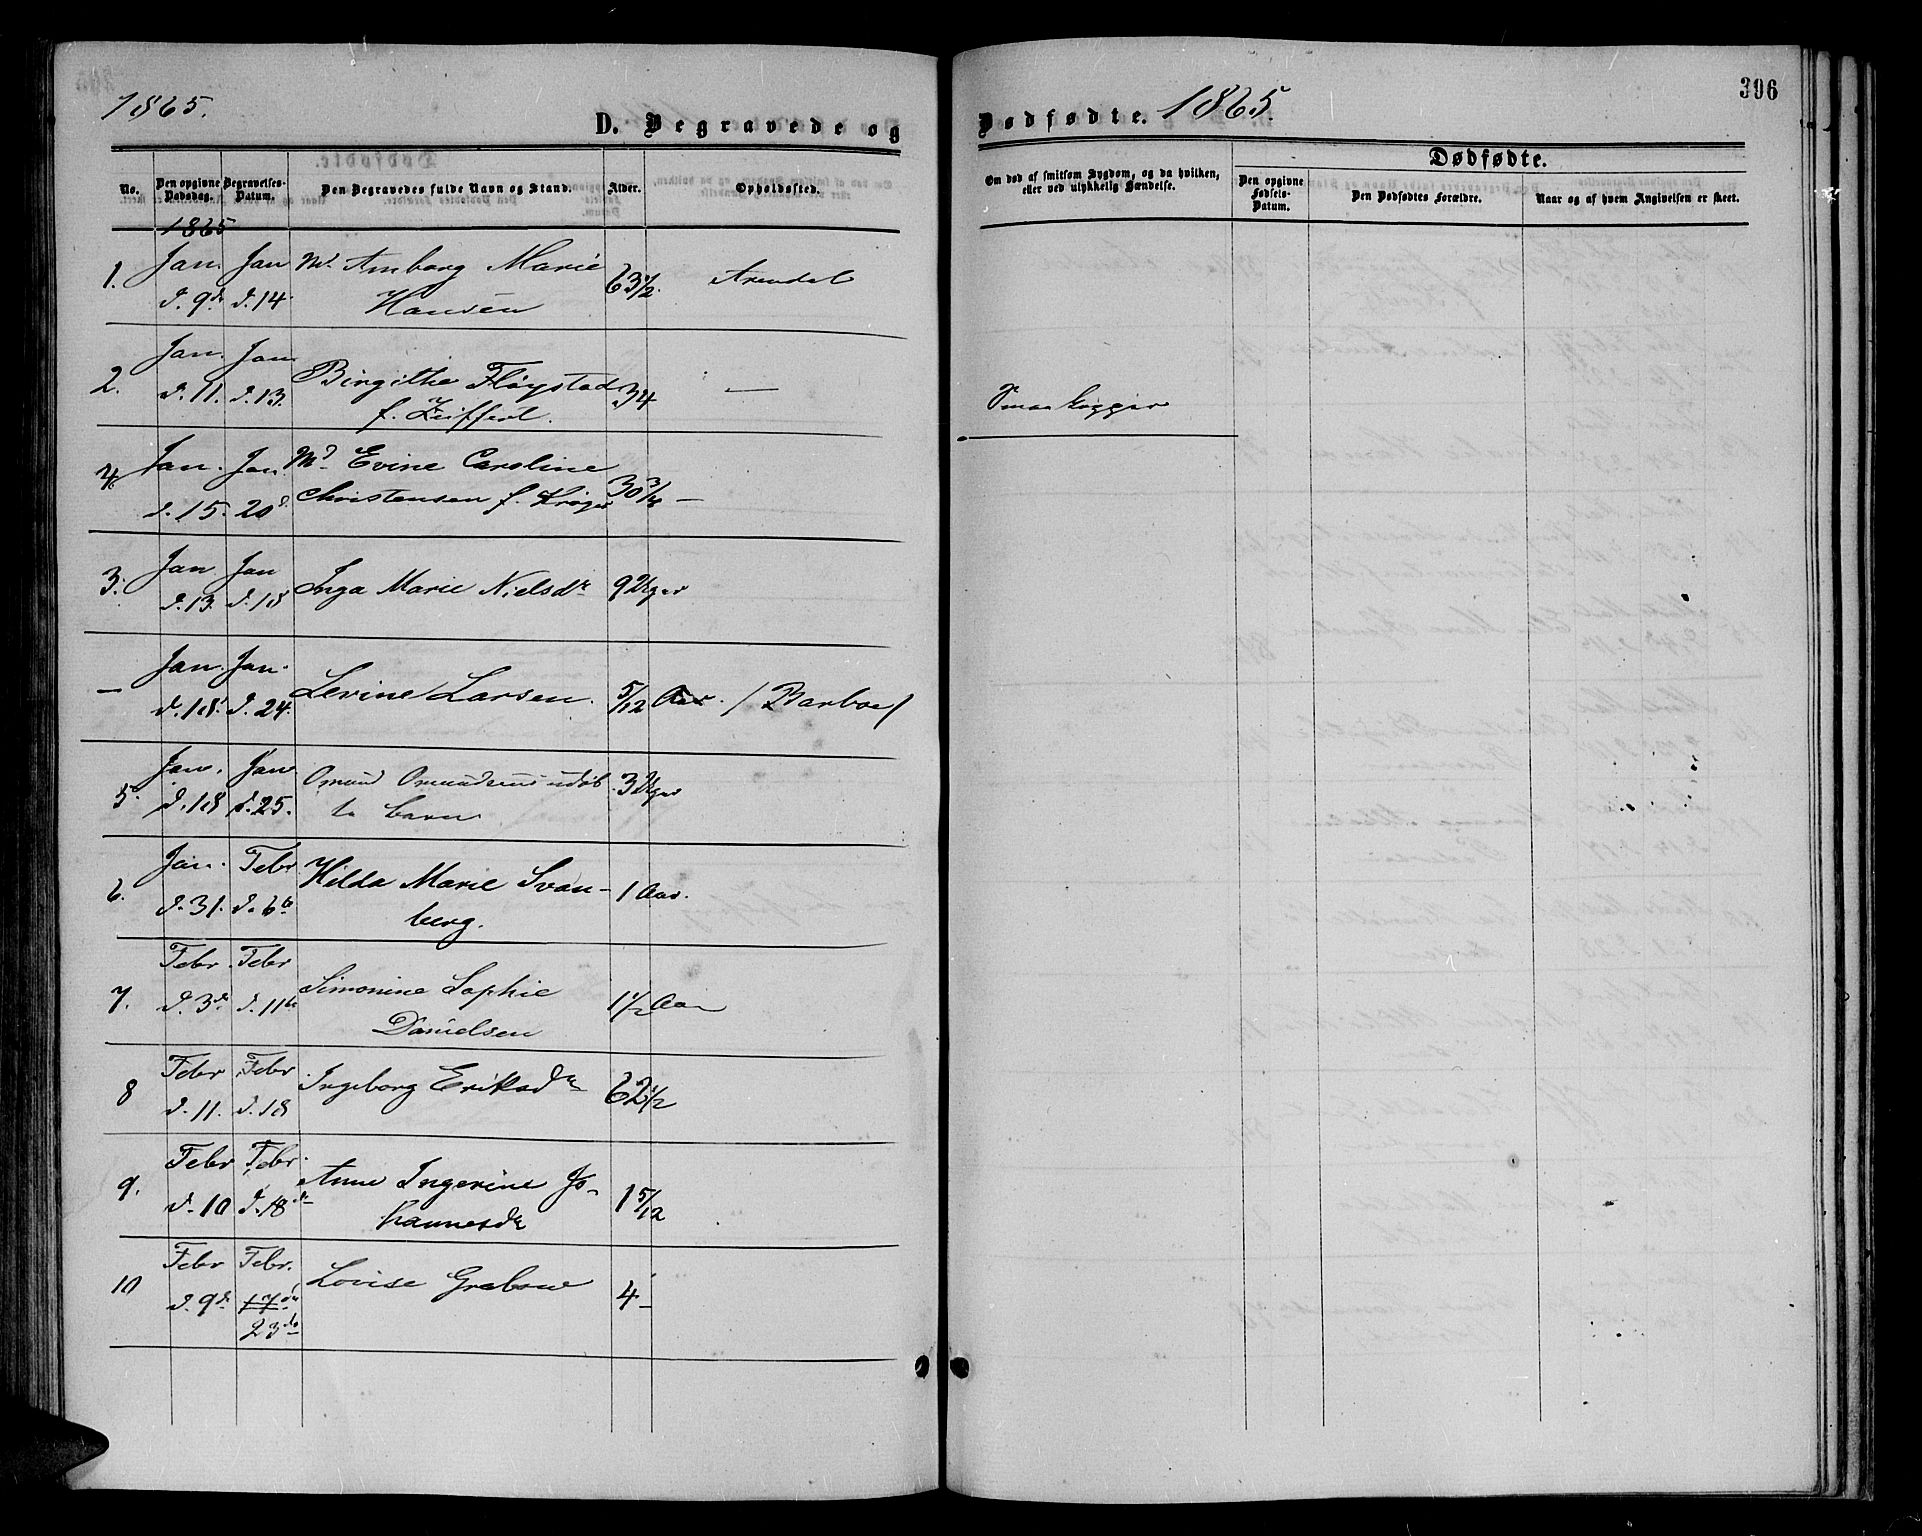 1865.
D. Begravede og
No.
Den opgivne Dødsdag.
Begravelses-Datum.
Den Begravedes fulde Navn og Stand.
Alder.
Opholdssted.
1865
1. Jan. Jan Md. Amborg Marie 63 1/2. Arendal
d. 9d. d. 14. Hansen
2. Jan. Jan. Birgithe Fløystad 34 —
d. 11. d. 13. f. Zeiffert.
4. Jan. Jan. Md. Evine Caroline 30 3/4 —
d. 15. 20d. Christensen f. Krøger
3. Jan. Jan Inga Marie Nielsdr 9 Uger
d. 13. d. 18
— Jan. Jan. Levine Larsen. 5/12 Aar. / Barboe/
d. 18. d. 24.
5. Jan. Jan Omund Omundsens udøb 3 Uger
d. 18 d. 25. te barn
6. Jan. Febr Hilda Marie Svan- 1 Aar.
d. 31. d. 6te berg.
7. Febr. Febr Simonine Sophie 1 1/2 Aar
d. 3d. d. 11te Danielsen
8 Febr Febr. Ingeborg Eriksdr 62 1/2
d. 11. d. 18
9. Febr Febr. Anne Ingerine Jo-
d. 10 d. 18de hannesdr 1 5/12
10 Febr Febr. Lovise Grabow 4 —
d. 9d. 17de
23de
Dødfødte. 1865.
396
Om død af smitsom Sygdom, og da hvilken, eller ved ulykkelig Hændelse.
Dødfødte.
Den opgivne Fødsels-Datum.
Den Dødfødtes Forældre.
Naar og af hvem Angivelsen er skeet.
Smaakopper